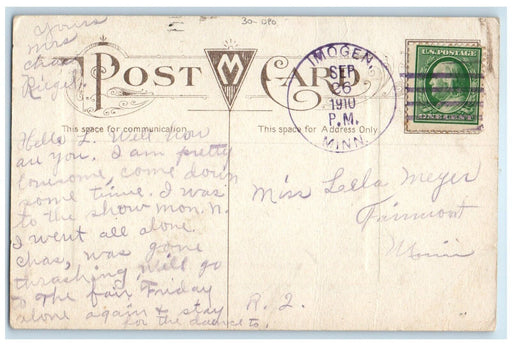 yours
mrs
Chas
30-060
POST CARD.
M
IMOGENE
SEP
26
1910
P.M.
MINN.
U.S. POSTAGE
ONE CENT
This space for communication.
This space for Address Only.
Hello L. Well how
are you. I am pretty
lonesome, come down
some time. I was
to the show mon. n.
I went all alone
Chas, was gone
thrashing will go
to the fair Friday
alone again & stay
for the dance to.
Miss Lella Meyer
Fairmont
Minn
R. 2.